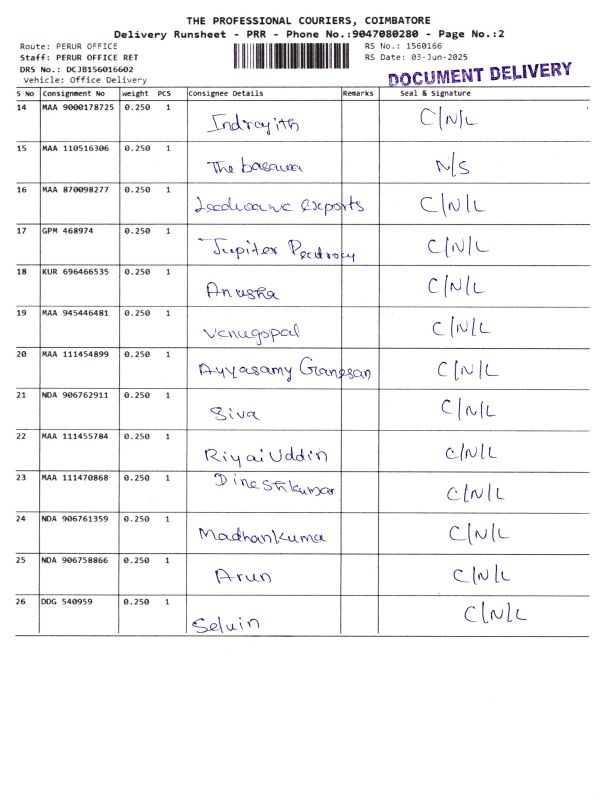 THE PROFESSIONAL COURIERS, COIMBATORE
Delivery Runsheet - PRR - Phone No.:9047080280 - Page No.:2
Route: PERUR OFFICE RS No.: 1560166
Staff: PERUR OFFICE RET RS Date: 03-Jun-2025
DRS No.: DCJB156016602
Vehicle: Office Delivery
DOCUMENT DELIVERY
S No Consignment No Weight PCS Consignee Details Remarks Seal & Signature
14 MAA 9000178725 0.250 1 Indrayith C/N/L
15 MAA 110516306 0.250 1 The basawa N/S
16 MAA 870098277 0.250 1 exports C/N/L
17 GPM 468974 0.250 1 Jupiter C/N/L
18 KUR 696466535 0.250 1 Anusha C/N/L
19 MAA 945446481 0.250 1 Venugopal C/N/L
20 MAA 111454899 0.250 1 Ayyasamy Ganesan C/N/L
21 NDA 906762911 0.250 1 Siva C/N/L
22 MAA 111455784 0.250 1 RiyaiUddin C/N/L
23 MAA 111470868 0.250 1 Dineshkumar C/N/L
24 NDA 906761359 0.250 1 Madhankuma C/N/L
25 NDA 906758866 0.250 1 Arun C/N/L
26 DDG 540959 0.250 1 Selvin C/N/L